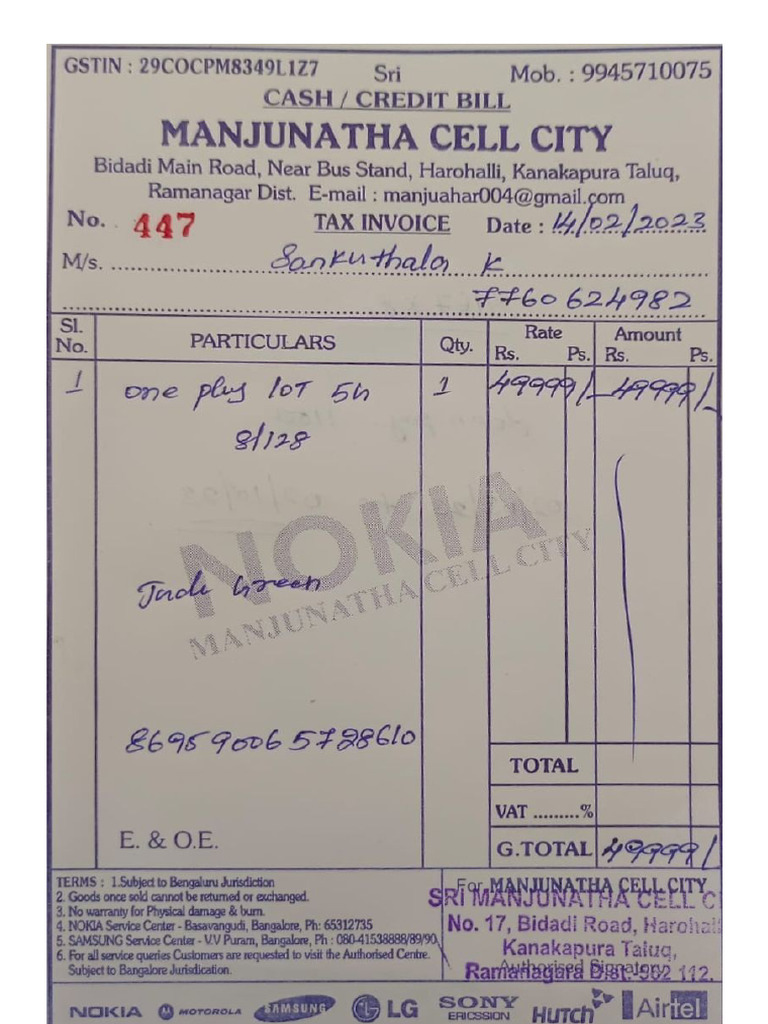 GSTIN : 29COCPM8349L1Z7 Sri Mob. : 9945710075
CASH / CREDIT BILL
MANJUNATHA CELL CITY
Bidadi Main Road, Near Bus Stand, Harohalli, Kanakapura Taluq,
Ramanagar Dist. E-mail : manjuahar004@gmail.com
No. 447 TAX INVOICE Date : 14/02/2023
M/s. Sankuthala K
7760624982
Sl. No. PARTICULARS Qty. Rate Rs. Ps. Amount Rs. Ps.
1 one plus 10T 5G 1 49999/- 49999/-
8/128
NOKIA
MANJUNATHA CELL CITY
Jade Green
869590065728610
TOTAL
VAT .........%
E. & O.E.
G.TOTAL 49999/
TERMS : 1.Subject to Bengaluru Jurisdiction
2. Goods once sold cannot be returned or exchanged.
3. No warranty for Physical damage & burn.
4. NOKIA Service Center - Basavangudi, Bangalore, Ph: 65312735
5. SAMSUNG Service Center - V.V Puram, Bangalore, Ph : 080-41538888/89/90
6. For all service queries Customers are requested to visit the Authorised Centre.
Subject to Bangalore Jurisdication.
For MANJUNATHA CELL CITY
SRI MANJUNATHA CELL C
No. 17, Bidadi Road, Harohall
Kanakapura Taluq,
Authorised Signatory
Ramanagara Dist. 562 112.
NOKIA MOTOROLA SAMSUNG LG SONY ERICSSION HUTCH Airtel